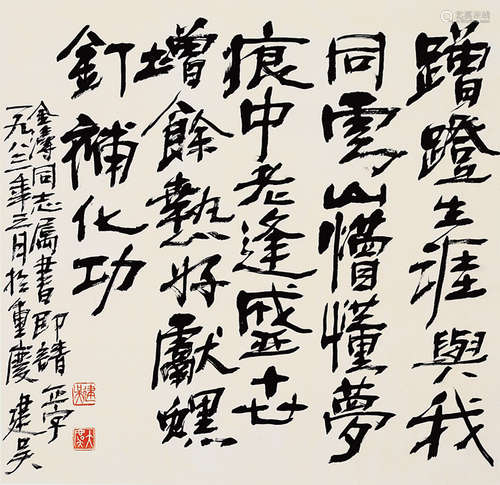 蹭蹬生涯與我
同雲山懵懂夢
痕中老逢盛世
增餘熱好獻螺
釘補化功
金濤同志属書即請正字
一九八三年三月於重慶 建吴